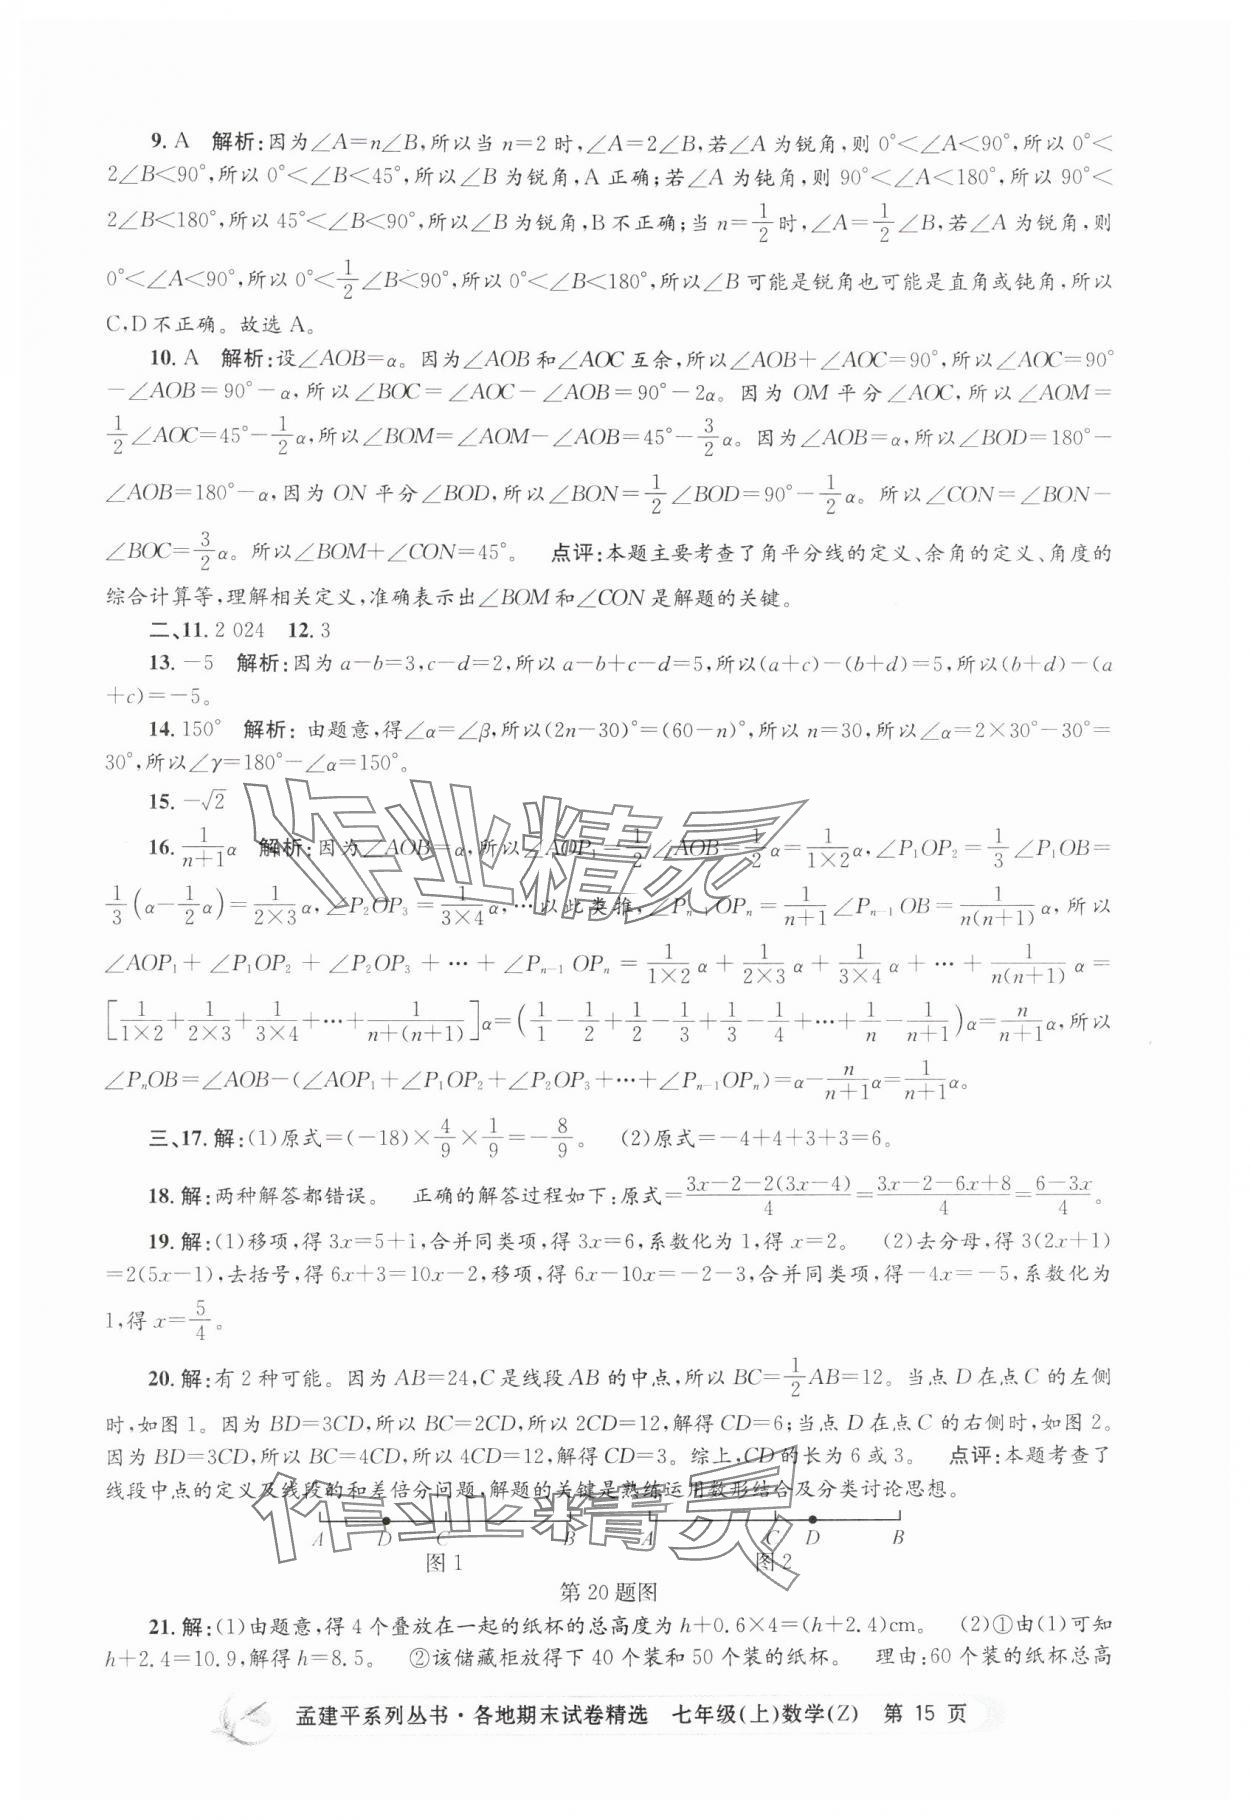 9. A　解析:因为∠A=n∠B,所以当 n=2 时,∠A=2∠B,若∠A 为锐角,则 0°<∠A<90°,所以 0°<
2∠B<90°,所以 0°<∠B<45°,所以∠B 为锐角,A 正确;若∠A 为钝角,则 90°<∠A<180°,所以 90°<
2∠B<180°,所以 45°<∠B<90°,所以∠B 为锐角,B 不正确;当 n=1/2时,∠A=1/2∠B,若∠A 为锐角,则
0°<∠A<90°,所以 0°<1/2∠B<90°,所以 0°<∠B<180°,所以∠B 可能是锐角也可能是直角或钝角,所以
C,D 不正确。故选 A。
10. A　解析:设∠AOB=α。因为∠AOB 和∠AOC 互余,所以∠AOB+∠AOC=90°,所以∠AOC=90°
-∠AOB=90°-α,所以∠BOC=∠AOC-∠AOB=90°-2α。因为 OM 平分∠AOC,所以∠AOM=
1/2∠AOC=45°-1/2α,所以∠BOM=∠AOM-∠AOB=45°-3/2α。因为∠AOB=α,所以∠BOD=180°-
∠AOB=180°-α,因为 ON 平分∠BOD,所以∠BON=1/2∠BOD=90°-1/2α。所以∠CON=∠BON-
∠BOC=3/2α。所以∠BOM+∠CON=45°。　点评:本题主要考查了角平分线的定义、余角的定义、角度的
综合计算等,理解相关定义,准确表示出∠BOM 和∠CON 是解题的关键。
二、11. 2 024　12. 3
13. -5　解析:因为 a-b=3,c-d=2,所以 a-b+c-d=5,所以(a+c)-(b+d)=5,所以(b+d)-(a
+c)=-5。
14. 150°　解析: 由题意,得∠α=∠β,所以(2n-30)°=(60-n)°,所以 n=30,所以∠α=2×30°-30°=
30°,所以∠γ=180°-∠α=150°。
15. -√2
16. 1/(n+1)α　解析:因为∠AOB=α,所以∠AOP₁=1/2∠AOB=1/2α=1/(1×2)α,∠P₁OP₂=1/3∠P₁OB=
1/3(α-1/2α)=1/(2×3)α,∠P₂OP₃=1/(3×4)α,…以此类推,∠Pₙ₋₁OPₙ=1/(n+1)∠Pₙ₋₁OB=1/(n(n+1))α,所以
∠AOP₁+∠P₁OP₂+∠P₂OP₃+…+∠Pₙ₋₁OPₙ=1/(1×2)α+1/(2×3)α+1/(3×4)α+…+1/(n(n+1))α=
[1/(1×2)+1/(2×3)+1/(3×4)+…+1/(n+(n+1))]α=(1/1-1/2+1/2-1/3+1/3-1/4+…+1/n-1/(n+1))α=n/(n+1)α,所以
∠PₙOB=∠AOB-(∠AOP₁+∠P₁OP₂+∠P₂OP₃+…+∠Pₙ₋₁OPₙ)=α-n/(n+1)α=1/(n+1)α。
三、17. 解:(1)原式=(-18)×4/9×1/9=-8/9。　(2)原式=-4+4+3+3=6。
18. 解:两种解答都错误。　正确的解答过程如下:原式=(3x-2-2(3x-4))/4=(3x-2-6x+8)/4=(6-3x)/4。
19. 解:(1)移项,得 3x=5+1,合并同类项,得 3x=6,系数化为 1,得 x=2。　(2)去分母,得 3(2x+1)
=2(5x-1),去括号,得 6x+3=10x-2,移项,得 6x-10x=-2-3,合并同类项,得-4x=-5,系数化为
1,得 x=5/4。
20. 解:有 2 种可能。因为 AB=24,C 是线段 AB 的中点,所以 BC=1/2AB=12。当点 D 在点 C 的左侧
时,如图 1。因为 BD=3CD,所以 BC=2CD,所以 2CD=12,解得 CD=6;当点 D 在点 C 的右侧时,如图 2。
因为 BD=3CD,所以 BC=4CD,所以 4CD=12,解得 CD=3。综上,CD 的长为 6 或 3。　点评:本题考查了
线段中点的定义及线段的和差倍分问题,解题的关键是熟练运用数形结合及分类讨论思想。
A D C B A C D B
图 1 图 2
第 20 题图
21. 解:(1)由题意,得 4 个叠放在一起的纸杯的总高度为 h+0.6×4=(h+2.4)cm。　(2)①由(1)可知
h+2.4=10.9,解得 h=8.5。　②该储藏柜放得下 40 个装和 50 个装的纸杯。　理由:60 个装的纸杯总高
孟建平系列丛书·各地期末试卷精选　七年级(上)数学(Z)　第 15 页
作业精灵
作业精灵